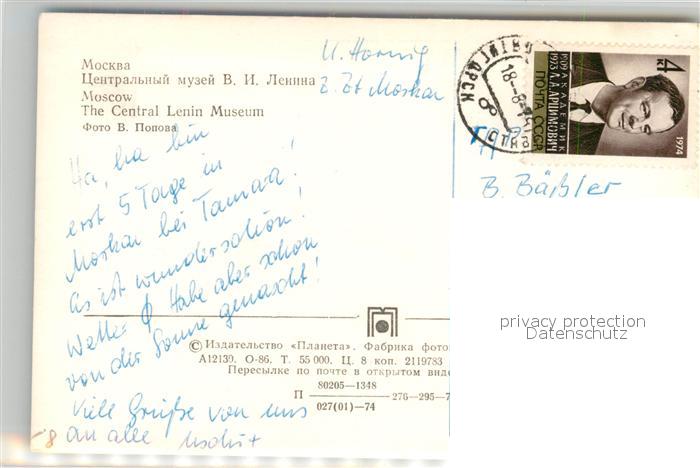 Москва
Центральный музей В. И. Ленина
Moscow
The Central Lenin Museum
Фото В. Попова
U. Hornig
z. Zt Moskau
Ha, ha bin !
erst 5 Tage in
Moskau bei Tamara!
Es ist wunderschön!
Wetter ϕ Habe aber schon
von der Sonne genascht!
Viele Grüße von uns
an alle
B. Bäßler
4 к
1909 АКАДЕМИК
1973 Л. А. АРЦИМОВИЧ
ПОЧТА СССР
1974
privacy protection
Datenschutz
© Издательство «Планета». Фабрика фото
А12139. О-86. Т. 55 000. Ц. 8 коп. 2119783
Пересылке по почте в открытом виде
80205—1348
П 276—295—7
027(01)—74